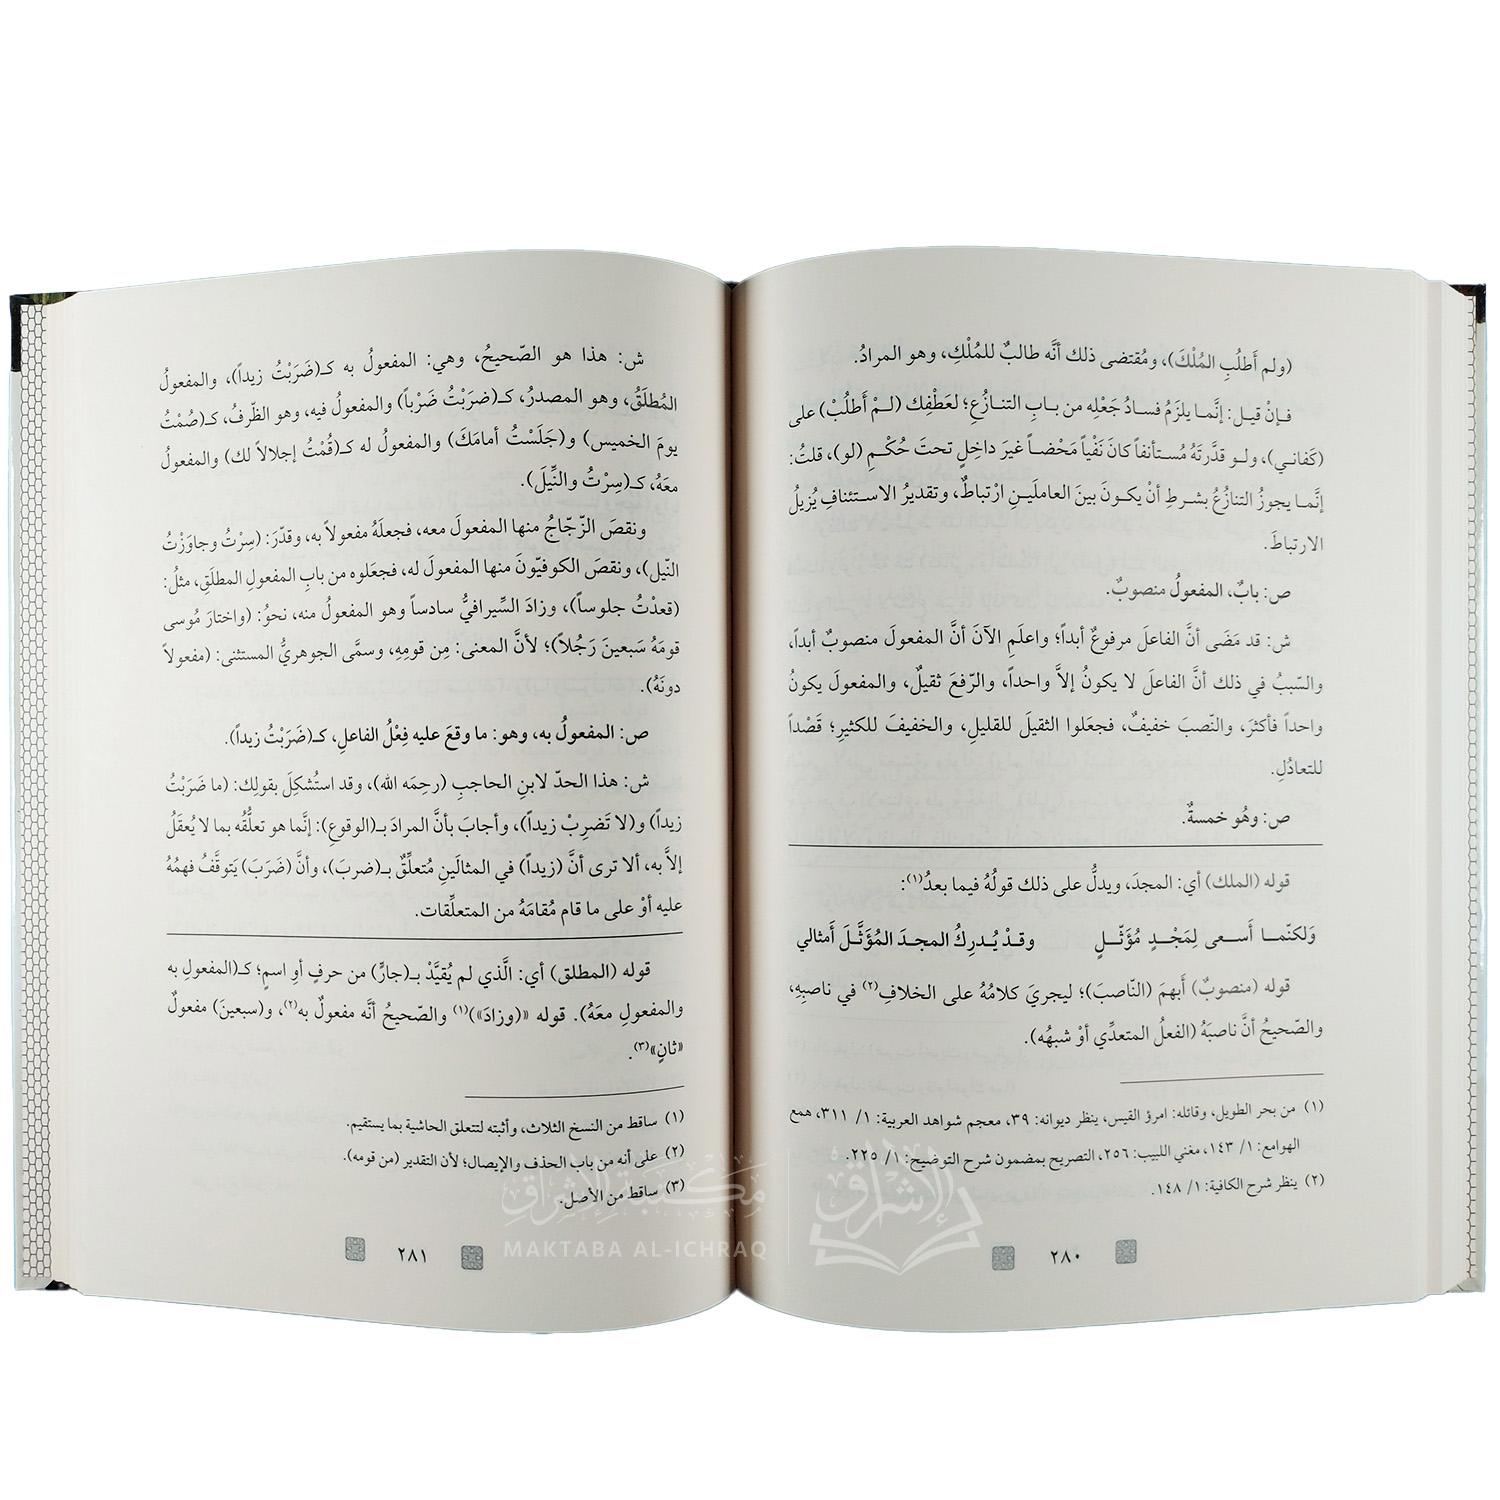 (ولم أَطلُبِ المُلْكَ)، ومُقتضى ذلك أنَّه طالبٌ للمُلْكِ، وهو المرادُ.
فإنْ قيل: إنَّما يلزَمُ فسادُ جَعْلِه من بابِ التنازُعِ؛ لعَطْفِك (لمْ أَطلُبْ) على
(كَفاني)، ولو قدَّرتَهُ مُستأنفاً كانَ نَفْياً مَحْضاً غيرَ داخِلٍ تحتَ حُكْمِ (لو)، قلتُ:
إنَّما يجوزُ التنازُعُ بشرطِ أنْ يكونَ بينَ العاملَينِ ارْتباطٌ، وتقديرُ الاستئنافِ يُزيلُ
الارتباطَ.
ص: بابٌ، المفعولُ منصوبٌ.
ش: قد مَضَى أنَّ الفاعلَ مرفوعٌ أبداً؛ واعلَمِ الآنَ أنَّ المفعولَ منصوبٌ أبداً،
والسّببُ في ذلك أنَّ الفاعلَ لا يكونُ إلاَّ واحداً، والرّفعَ ثقيلٌ، والمفعولَ يكونُ
واحداً فأكثرَ، والنّصبَ خفيفٌ، فجعَلوا الثقيلَ للقليلِ، والخفيفَ للكثيرِ؛ قَصْداً
للتعادُلِ.
ص: وهُو خمسةٌ.
قوله (الملك) أي: المجدَ، ويدلُّ على ذلك قولُهُ فيما بعدُ(١):
وَلكنّما أَسعى لِمَجْدٍ مُؤَثّلٍ وقدْ يُدرِكُ المجدَ المُؤَثَّلَ أَمثالي
قوله (منصوبٌ) أَبهمَ (النّاصبَ)؛ ليجريَ كلامُهُ على الخلافِ(٢) في ناصبِهِ،
والصّحيحُ أنَّ ناصبَهُ (الفعلُ المتعدِّي أوْ شبهُه).
(١) من بحر الطويل، وقائله: امرؤ القيس، ينظر ديوانه: ٣٩، معجم شواهد العربية: ١/ ٣١١، همع
الهوامع: ١/ ١٤٣، مغني اللبيب: ٢٥٦، التصريح بمضمون شرح التوضيح: ١/ ٢٢٥.
(٢) ينظر شرح الكافية: ١/ ١٤٨.
٢٨٠
ش: هذا هو الصّحيحُ، وهي: المفعولُ به كـ(ضَرَبْتُ زيداً)، والمفعولُ
المُطلَقُ، وهو المصدرُ، كـ(ضرَبْتُ ضَرْباً) والمفعولُ فيه، وهو الظّرفُ، كـ(صُمْتُ
يومَ الخميس) و(جَلَسْتُ أمامَكَ) والمفعولُ له كـ(قُمْتُ إجلالاً لك) والمفعولُ
معَهُ، كـ(سِرْتُ والنِّيلَ).
ونقصَ الزّجّاجُ منها المفعولَ معه، فجعلَهُ مفعولاً به، وقدّرَ: (سِرْتُ وجاوَزْتُ
النّيل)، ونقصَ الكوفيّونَ منها المفعولَ له، فجعَلوه من بابِ المفعولِ المطلَقِ، مثلُ:
(قعدْتُ جلوساً)، وزادَ السِّيرافيُّ سادساً وهو المفعولُ منه، نحوُ: (واختارَ مُوسى
قومَهُ سَبعينَ رَجُلاً)؛ لأنَّ المعنى: مِن قومِهِ، وسمَّى الجوهريُّ المستثنى: (مفعولاً
دونَهُ).
ص: المفعولُ به، وهو: ما وقعَ عليه فِعْلُ الفاعلِ، كـ(ضَرَبْتُ زيداً).
ش: هذا الحدّ لابنِ الحاجبِ (رحِمَه الله)، وقد استُشكِلَ بقولِك: (ما ضَرَبْتُ
زيداً) و(لا تَضرِبْ زيداً)، وأجابَ بأنَّ المرادَ بـ(الوقوعِ): إنَّما هو تعلُّقُه بما لا يُعقَلُ
إلاَّ به، ألا ترى أنَّ (زيداً) في المثالَينِ مُتعلِّقٌ بـ(ضربَ)، وأنَّ (ضَرَبَ) يَتوقَّفُ فهمُهُ
عليه أوْ على ما قام مُقامَهُ من المتعلِّقات.
قوله (المطلق) أي: الَّذي لم يُقيَّدْ بـ(جارٍّ) من حرفٍ أوِ اسمٍ؛ كـ(المفعولِ به
والمفعولِ معَهُ). قوله «(وزادَ»)(١) والصّحيحُ أنَّه مفعولٌ به(٢)، و(سبعينَ) مفعولٌ
«ثانٍ»(٣).
(١) ساقط من النسخ الثلاث، وأثبته لتتعلق الحاشية بما يستقيم.
(٢) على أنه من باب الحذف والإيصال؛ لأن التقدير (من قومه).
(٣) ساقط من الأصل.
٢٨١
مكتبة الإشراق
MAKTABA AL-ICHRAQ
الإشراق